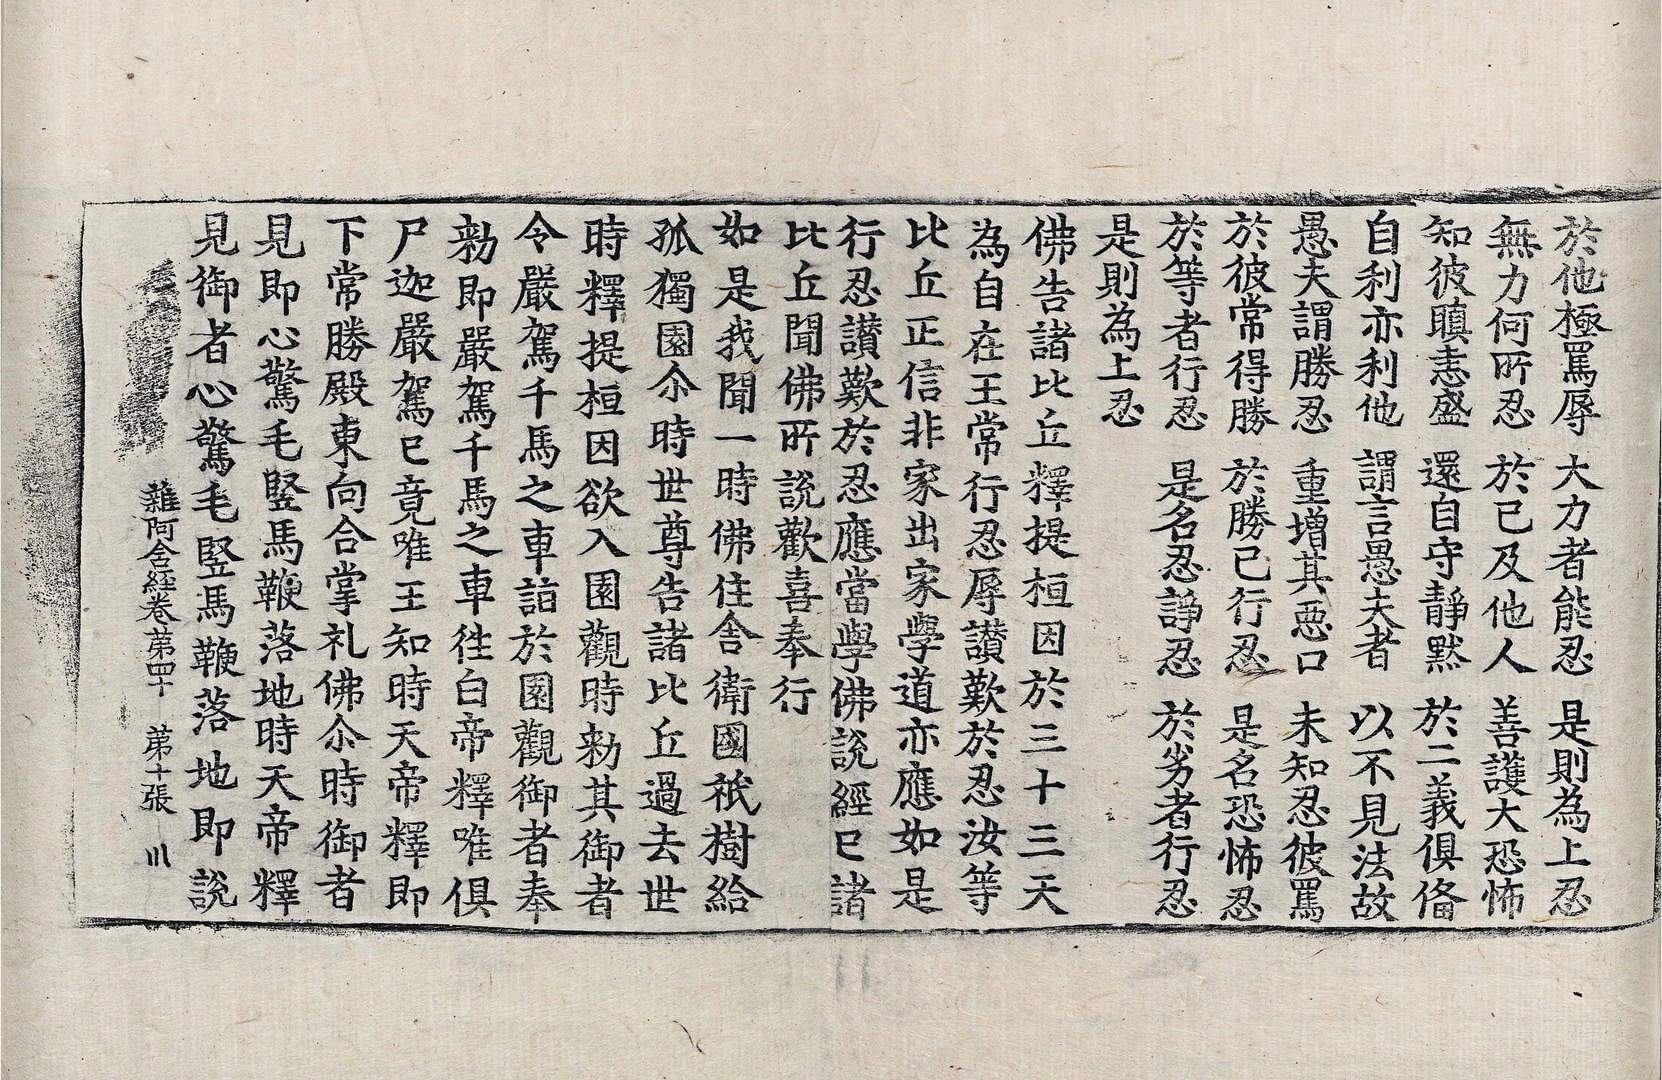 於他極罵辱 大力者能忍 是則為上忍
無力何所忍 於已及他人 善護大恐怖
知彼瞋恚盛 還自守靜默 於二義俱俻
自利亦利他 謂言愚夫者 以不見法故
愚夫謂勝忍 重增其惡口 未知忍彼罵
於彼常得勝 於勝已行忍 是名恐怖忍
於等者行忍 是名忍諍忍 於劣者行忍
是則為上忍
佛告諸比丘釋提桓因於三十三天
為自在王常行忍辱讃歎於忍汝等
比丘正信非家出家學道亦應如是
行忍讃歎於忍應當學佛說經已諸
比丘聞佛所說歡喜奉行
如是我聞一時佛住舍衛國祇樹給
孤獨園尒時世尊告諸比丘過去世
時釋提桓因欲入園觀時勑其御者
令嚴駕千馬之車詣於園觀御者奉
勑即嚴駕千馬之車徃白帝釋唯俱
尸迦嚴駕已竟唯王知時天帝釋即
下常勝殿東向合掌礼佛尒時御者
見即心驚毛竪馬鞭落地時天帝釋
見御者心驚毛竪馬鞭落地即說
雜阿含經卷第四十 第十張 川